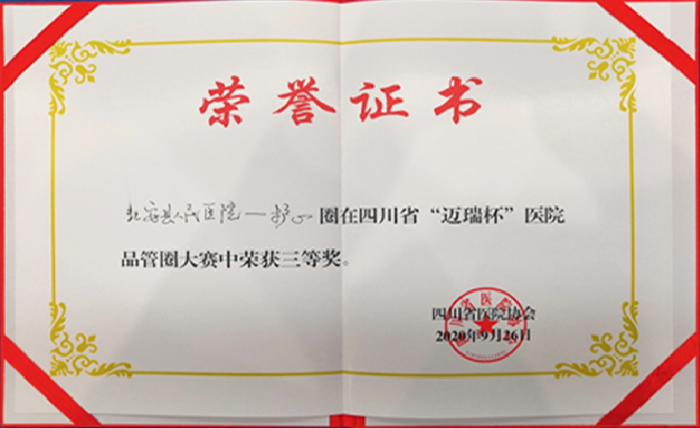 荣誉证书
县人民医院—护心圈在四川省“迈瑞杯”医院
品管圈大赛中荣获三等奖。
四川省医院协会
2020年9月26日